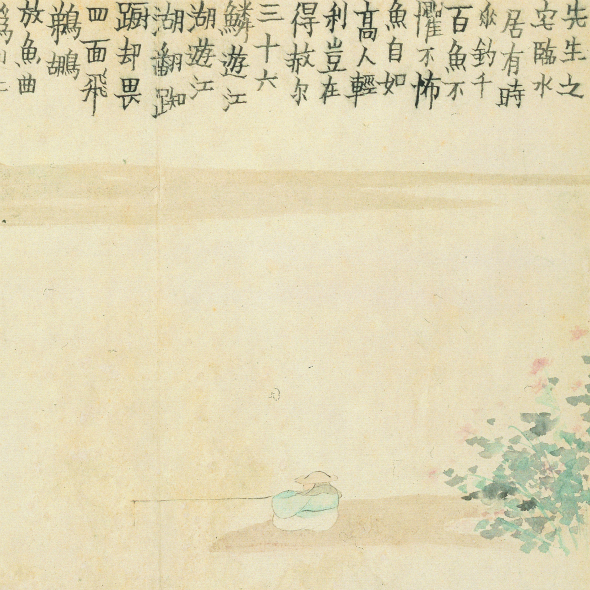 先生之
宅臨水
居有時
垂釣千
百魚不
懼不怖
魚自如
高人輕
利豈在
得赦尔
三十六
鱗遊江
湖遊江
湖翻踟
蹰却畏
四面飛
鵜鶘
放魚曲